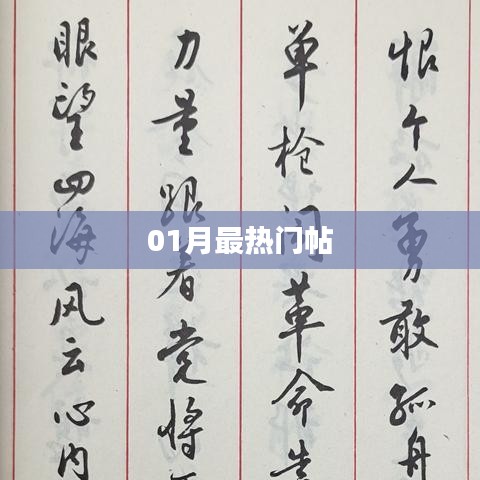 恨个人勇敢孤舟
单枪闯革命
力量跟着党将
眼望四海风云心内
01月最热门帖